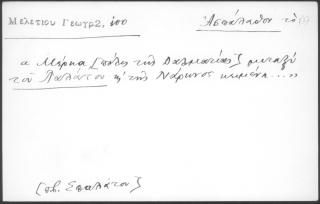 Μελετίου Γεωγρ2, ἐπο Ἀσπάλαθον τὸ
α Μέρκα [πόλις τῆς Δαλματίας] μεταξὺ
τοῦ Παλάτου κ' τῆς Νάρωνος κειμένη....»
[πβ. Σπαλάτον]